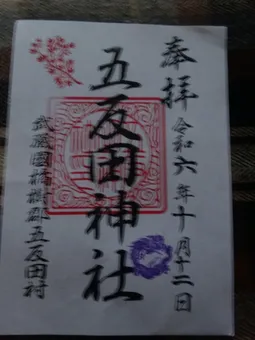 奉拝
令和六年十月十二日
五反田神社
武蔵國橘樹郡五反田村